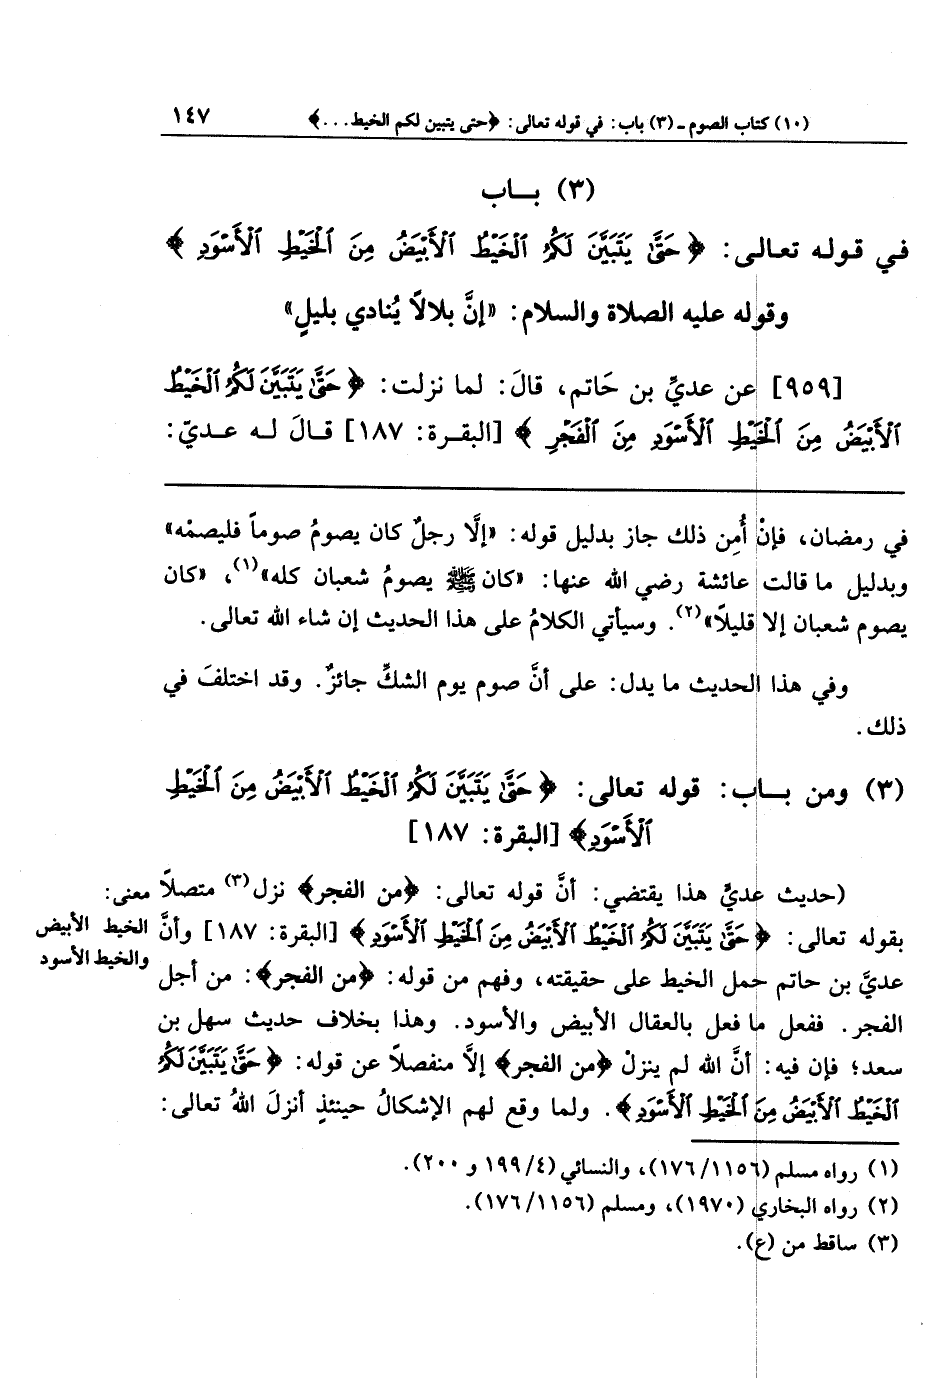 (١٠) كتاب الصوم ـ (٣) باب: في قوله تعالى: ﴿حتى يتبين لكم الخيط...﴾ ١٤٧
(٣) بـــاب
في قوله تعالى: ﴿حَتَّىٰ يَتَبَيَّنَ لَكُمُ الْخَيْطُ الْأَبْيَضُ مِنَ الْخَيْطِ الْأَسْوَدِ﴾
وقوله عليه الصلاة والسلام: «إنَّ بلالاً يُنادي بليلٍ»
[٩٥٩] عن عديِّ بن حَاتم، قالَ: لما نزلت: ﴿حَتَّىٰ يَتَبَيَّنَ لَكُمُ الْخَيْطُ
الْأَبْيَضُ مِنَ الْخَيْطِ الْأَسْوَدِ مِنَ الْفَجْرِ﴾ [البقرة: ١٨٧] قالَ له عديّ:
في رمضان، فإنْ أُمِن ذلك جاز بدليل قوله: «إلَّا رجلٌ كان يصومُ صوماً فليصمْه»
وبدليل ما قالت عائشة رضي الله عنها: «كان ﷺ يصومُ شعبان كله»(١)، «كان
يصوم شعبان إلا قليلاً»(٢). وسيأتي الكلامُ على هذا الحديث إن شاء الله تعالى.
وفي هذا الحديث ما يدل: على أنَّ صوم يوم الشكِّ جائزٌ. وقد اختلفَ في
ذلك.
(٣) ومن بـــاب: قوله تعالى: ﴿حَتَّىٰ يَتَبَيَّنَ لَكُمُ الْخَيْطُ الْأَبْيَضُ مِنَ الْخَيْطِ
الْأَسْوَدِ﴾ [البقرة: ١٨٧]
(حديث عديٍّ هذا يقتضي: أنَّ قوله تعالى: ﴿من الفجر﴾ نزل(٣) متصلاً
بقوله تعالى: ﴿حَتَّىٰ يَتَبَيَّنَ لَكُمُ الْخَيْطُ الْأَبْيَضُ مِنَ الْخَيْطِ الْأَسْوَدِ﴾ [البقرة: ١٨٧] وأنَّ
عديَّ بن حاتم حمل الخيط على حقيقته، وفهم من قوله: ﴿من الفجر﴾: من أجل
الفجر. ففعل ما فعل بالعقال الأبيض والأسود. وهذا بخلاف حديث سهل بن
سعد؛ فإن فيه: أنَّ الله لم ينزلْ ﴿من الفجر﴾ إلَّا منفصلاً عن قوله: ﴿حَتَّىٰ يَتَبَيَّنَ لَكُمُ
الْخَيْطُ الْأَبْيَضُ مِنَ الْخَيْطِ الْأَسْوَدِ﴾. ولما وقع لهم الإشكالُ حينئذٍ أنزلَ اللهُ تعالى:
معنى:
الخيط الأبيض
والخيط الأسود
(١) رواه مسلم (١١٥٦/١٧٦)، والنسائي (٤/١٩٩ و ٢٠٠).
(٢) رواه البخاري (١٩٧٠)، ومسلم (١١٥٦/١٧٦).
(٣) ساقط من (ع).